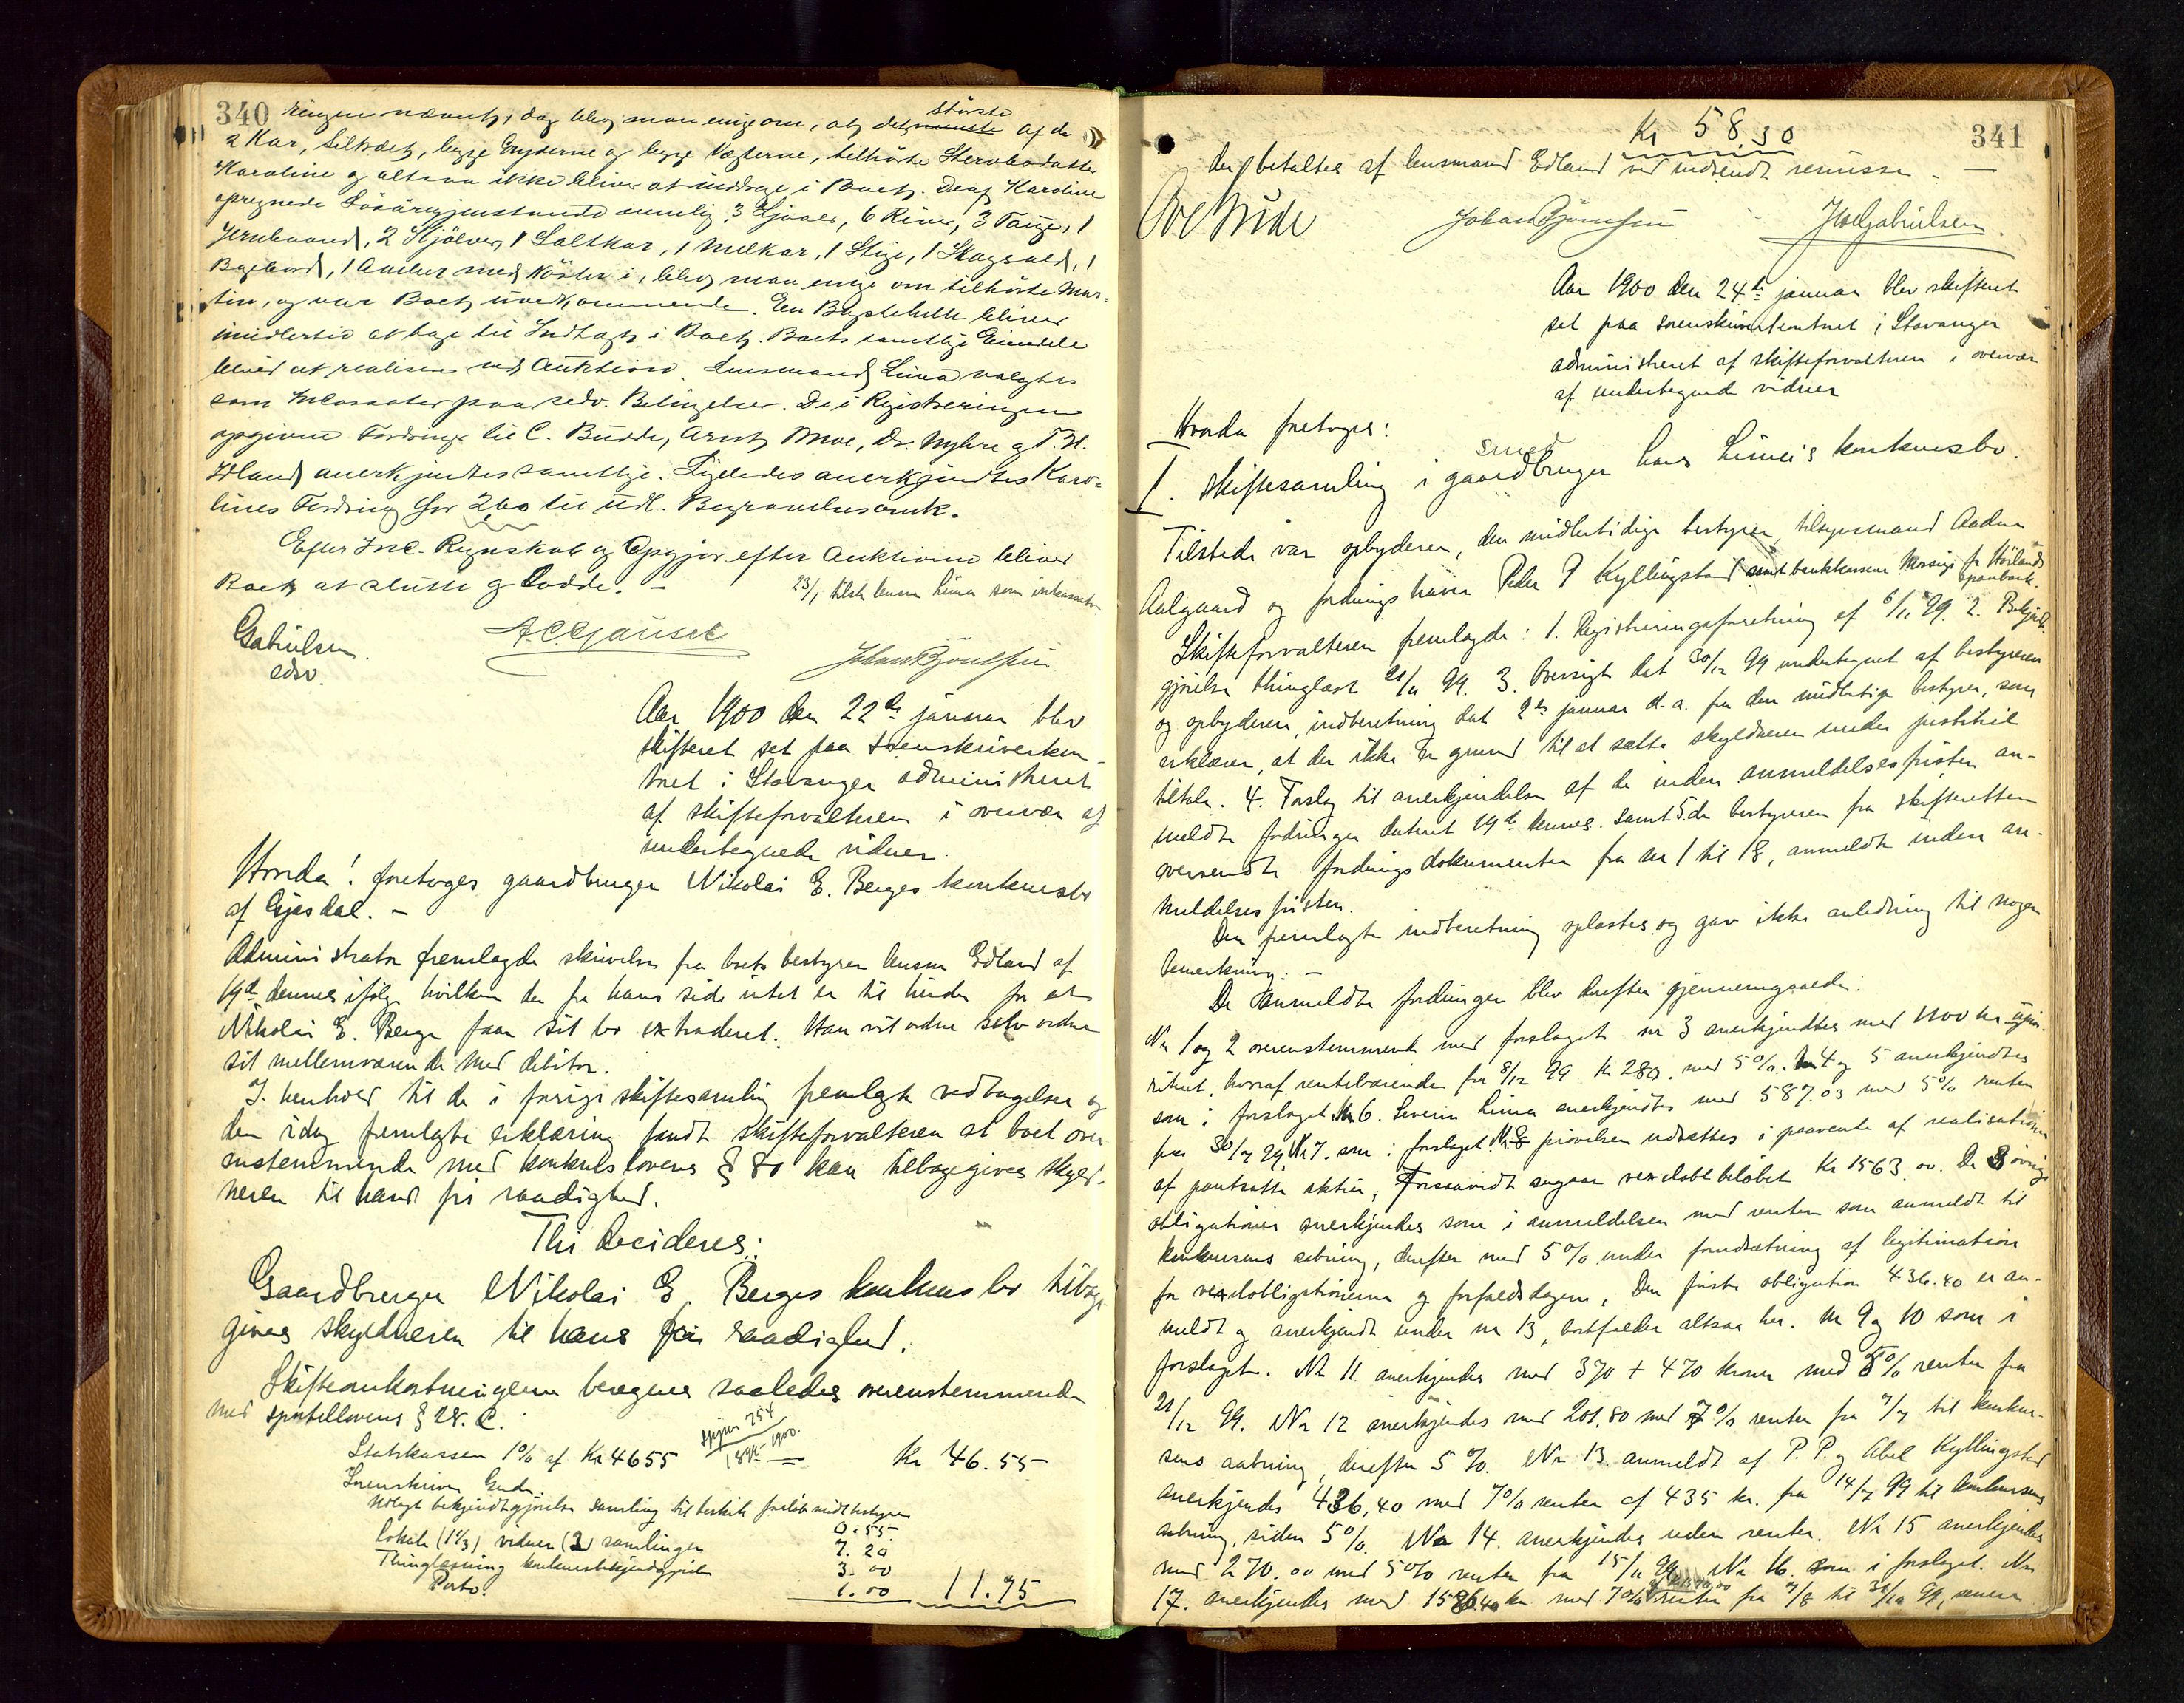 340
ringen nævnt, dog blev man enige om, at det største af de
2 Kar, Silkræt, begge Gryderne og begge Vægterne, tilhørte Stervbodatter
Karoline og altsaa ikke bliver at inddrage i Boet. De af Karoline
opregnede Løsøregjenstande nemlig 3 Ljaaer, 6 River, 3 Tønge, 1
Jernbaand, 2 Hjølver, 1 Saltkar, 1 Melkar, 1 Stige, 1 Skagsald, 1
Bagebord, 1 med i, blev man enige om tilhørte Mar-
tin, og var Boet uvedkommende. En Bagstehelle bliver
imidlertid at tage til Indtægt i Boet. Boets samtlige Eiendele
bliver at realisere ved Auktion. Lensmand Lima valgtes
som Incassator paa sedv. Betingelser. De i Registreringen
opgivne Fordringer til C. Budde, Arnt Moe, Dr. Nyhre og T. H.
Idland anerkjendtes samtlige. Ligeledes anerkjendtes Karo-
lines Fordring for 200 til Udl. Begravelsesomk.
Efter Inc. Regnskab og Opgjør efter Auktionen bliver
Boet at slutte og lodde. -
23/1 tilsk lensm Lima som inkassator
Gabrielsen
edsv.
A. C. Gausel
Johan Gjønsson
Aar 1900 den 22de januar blev
skifteret set paa sorenskriverkon-
toret i Stavanger administreret
af skifteforvalteren i overvær af
undertegnede vidner.
Hvorda! foretoges gaardbruger Nikolai E. Berges konkursbo
af Gjesdal. -
Administrator fremlagde skrivelse fra boets bestyrer lensm Edland af
19de dennes ifølge hvilken der fra hans side intet er til hinder for at
Nikolai E. Berge faar sit bo extraderet. Han vil ordne selv ordne
sit mellemværende med debitor.
I henhold til de i forrige skiftesamling fremlagte vedtagelser og
den idag fremlagte erklæring fandt skifteforvalteren at boet over-
ensstemmende med konkurslovens § 80 kan tilbagegives skyld-
neren til hans fri raadighed.
Thi decideres:
Gaardbruger Nikolai E. Berges konkursbo tilbage
gives skyldneren til hans fri raadighed.
Skifteomkostningerne beregnes saaledes overensstemmende
med sportellovens § 28. C.
Statskassen 1% af Kr 4655 Kr 46.55
Sorenskriver Gude.
Udlagt bekjendtgjørelse samling til beskik forløb midl bestyrer
0.55
Lokale (1 1/3) vidner (2) samlinger 7.20
Thinglæsning konkursbekjendtgjørelse 3.00
Porto. 1.00 11.75
341
Kr 58.30
der betaltes af lensmand Edland ved indsendt remisse. -
Ove Gude
Johan Gjønsson
J. M. Gabrielsen
Aar 1900 den 24de januar blev skifteret
set paa sorenskriverkontoret i Stavanger
administreret af skifteforvalteren i overvær
af undertegnede vidner
Hvorda foretoges:
smed
1. Skiftesamling i gaardbruger Hans Limeis konkursbo.
Tilstede var opbyderen, den midlertidige bestyrer, tilsynsmand Aadne
Aalgaard og fordringshaver Peder P Kyllingstad samt bankkasserer for Høilands
sparebank.
Skifteforvalteren fremlagde: 1. Registreringsforretning af 6/11 99. 2. Bekjendt-
gjørelse thinglæst 21/11 99. 3. Oversigt dat 30/12 99 undertegnet af bestyreren
og opbyderen, indberetning dat 2de januar d. a. fra den midlertidige bestyrer, som
erklærer, at der ikke er grund til at sætte skyldneren under justitiel
tiltale. 4. Forslag til anerkjendelse af de inden anmeldelsesfristen an-
meldte fordringer dateret 19de dennes. samt 5. de bestyreren fra skifteretten
oversendte fordringsdokumenter fra nr 1 til 18, anmeldte inden an-
meldelsesfristen.
Den fremlagte indberetning oplæstes og gav ikke anledning til nogen
bemerkning. -
De anmeldte fordringer blev derefter gjennemgaaede.
Nr 1 og 2 overensstemmende med forslaget nr 3 anerkjendtes med 1100 kr upri-
riteret, hvoraf rentebærende fra 8/12 99 Kr 280. med 5%. Nr 4 og 5 anerkjendtes
som i forslaget. Nr 6. Severin Lima anerkjendtes med 587.03 med 5% renter
fra 30/7 99. Nr 7. som i forslaget. Nr 8 prøvelsen udsættes i paavente af realisationen
af pantsatte aktier, forsaavidt angaar vexelobl beløbet Kr 1563.00. De 3 øvrige
obligationer anerkjendes som i anmeldelsen med renter som anmeldt til
konkursens aabning, derefter med 5% under forudsætning af legitimation
for vexelobligationerne og forfaldsdagene. Den første obligation 436.40 er an-
meldt og anerkjendt under nr 13, bortfalder altsaa her. Nr 9 og 10 som i
forslaget. Nr 11. anerkjendes med 370 + 470 kroner med 5% renter fra
21/12 99. Nr 12 anerkjendes med 201.80 med 7% renter fra 7/7 til konkur-
sens aabning, derefter 5%. Nr 13. anmeldt af P. P. og Abel Kyllingstad
anerkjendes 436,40 med 7% renter af 435 kr. fra 14/7 99 til konkursens
aabning, siden 5%. Nr 14. anerkjendes uden renter. Nr 15 anerkjendes
med 270.00 med 5% renter fra 15/11 99. Nr 16. som i forslaget. Nr
17. anerkjendes med 1586.40 kr med 7% renter fra 7/8 til 31/10 99, senere